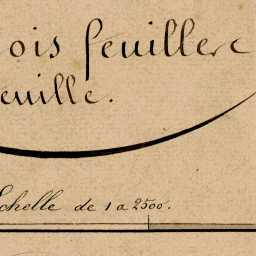 ois feuilles
euille.
Echelle de 1 a 2500.